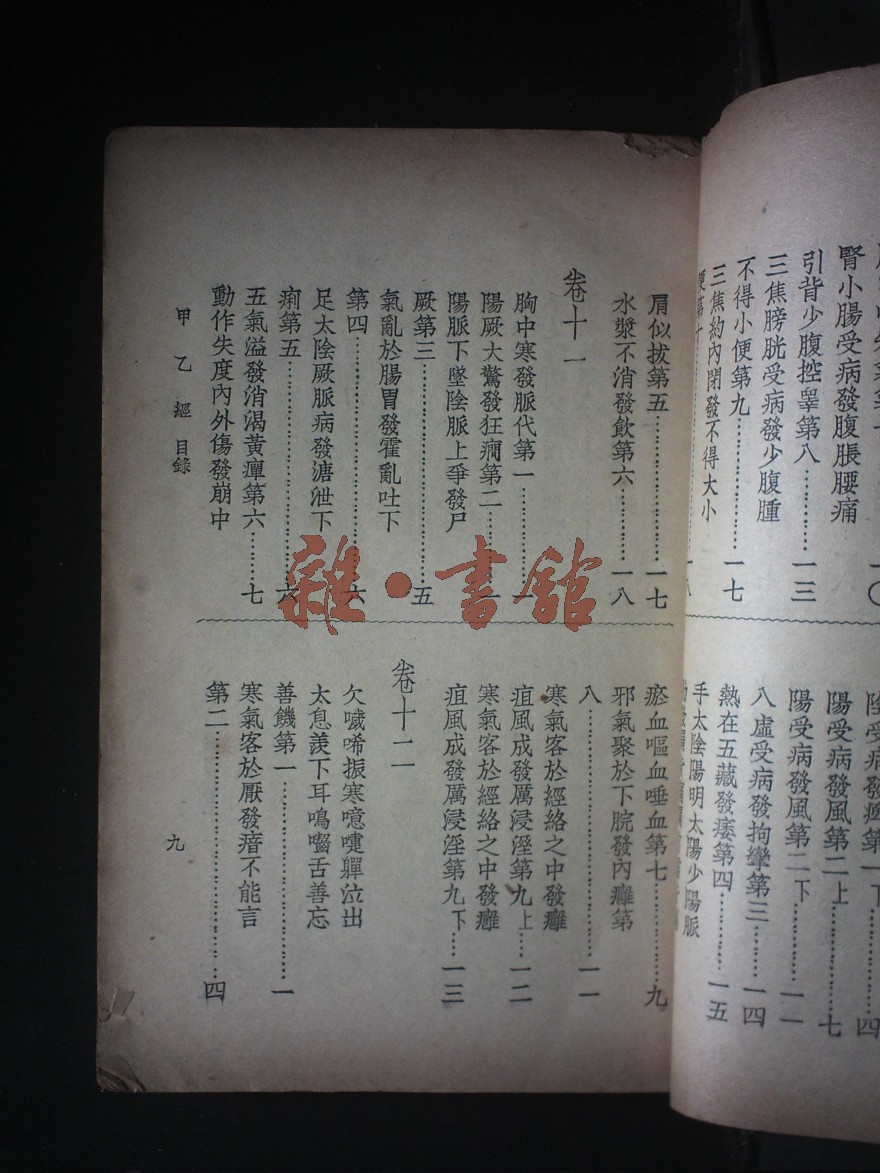 一〇
腎小腸受病發腹脹腰痛
引背少腹控睾第八……一三
三焦膀胱受病發少腹腫
不得小便第九……一七
三焦約內閉發不得大小
便第十……一八
陰受病發痺第一下……四
陽受病發風第二上……七
陽受病發風第二下……一一
八虛受病發拘攣第三……一四
熱在五藏發痿第四……一五
手太陰陽明太陽少陽脈
肩似拔第五……一七
水漿不消發飲第六……一八
卷十一
胸中寒發脈代第一……一
陽厥大驚發狂癇第二……一
陽脈下墜陰脈上爭發尸
厥第三……五
氣亂於腸胃發霍亂吐下
第四……六
足太陰厥脈病發溏泄下
痢第五……六
五氣溢發消渴黃癉第六……七
動作失度內外傷發崩中
瘀血嘔血唾血第七……九
邪氣聚於下脘發內癰第
八……一一
寒氣客於經絡之中發癰
疽風成發厲浸淫第九上……一二
寒氣客於經絡之中發癰
疽風成發厲浸淫第九下……一三
卷十二
欠噦唏振寒噫嚏軃泣出
太息羨下耳鳴囓舌善忘
善饑第一……一
寒氣客於厭發瘖不能言
第二……四
甲乙經 目錄
九
雜·書館